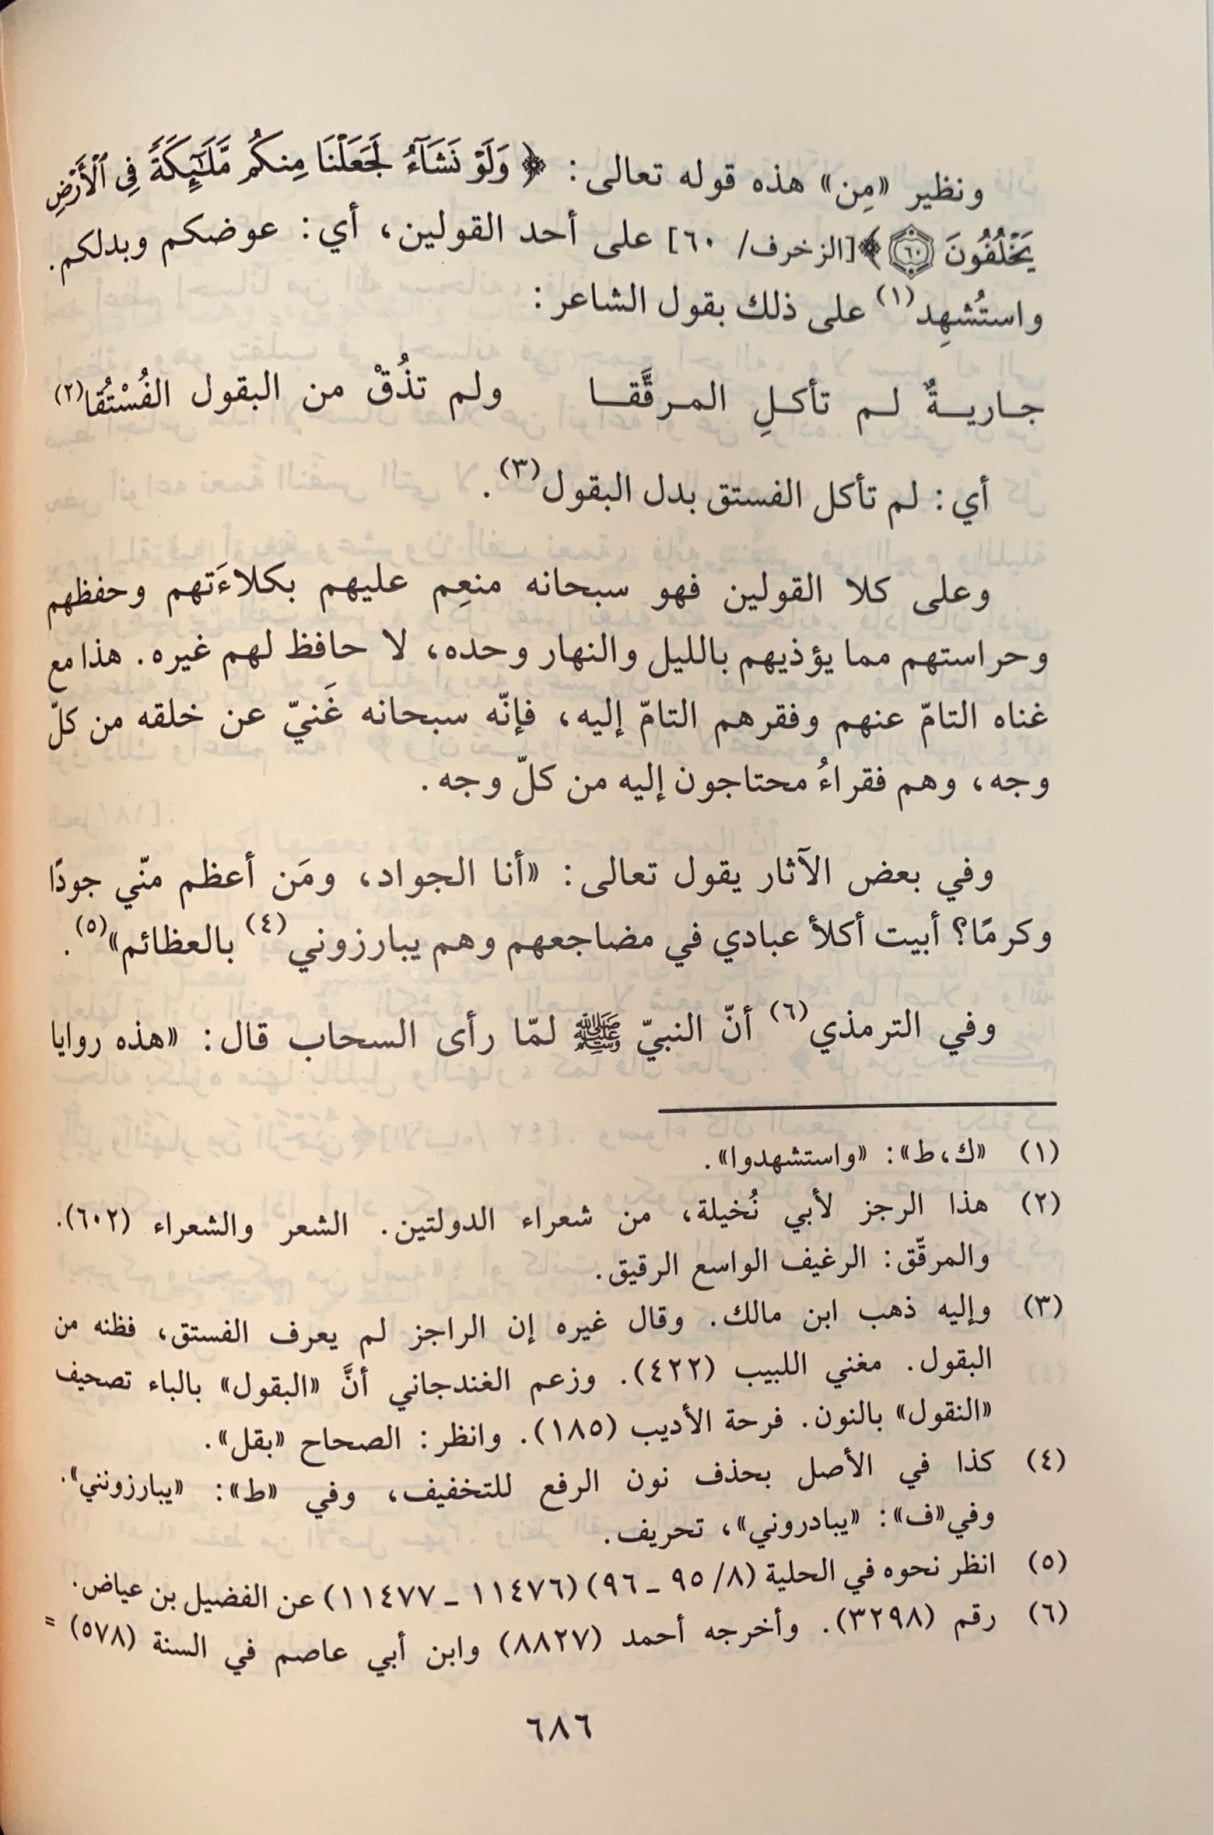 ونظير «مِن» هذه قوله تعالى: ﴿وَلَوْ نَشَآءُ لَجَعَلْنَا مِنكُم مَّلَٰٓئِكَةً فِى ٱلْأَرْضِ
يَخْلُفُونَ ٦٠﴾ [الزخرف/ ٦٠] على أحد القولين، أي: عوضكم وبدلكم.
واستُشهِد(١) على ذلك بقول الشاعر:
جاريةٌ لم تأكلِ المرقَّقا ولم تذُقْ من البقول الفُسْتُقا(٢)
أي: لم تأكل الفستق بدل البقول(٣).
وعلى كلا القولين فهو سبحانه منعِم عليهم بكلاءَتهم وحفظهم
وحراستهم مما يؤذيهم بالليل والنهار وحده، لا حافظ لهم غيره. هذا مع
غناه التامّ عنهم وفقرهم التامّ إليه، فإنّه سبحانه غَنيّ عن خلقه من كلّ
وجه، وهم فقراءُ محتاجون إليه من كلّ وجه.
وفي بعض الآثار يقول تعالى: «أنا الجواد، ومَن أعظم منّي جودًا
وكرمًا؟ أبيت أكلأ عبادي في مضاجعهم وهم يبارزوني(٤) بالعظائم»(٥).
وفي الترمذي(٦) أنّ النبيّ ﷺ لمّا رأى السحاب قال: «هذه روايا
(١) «ك، ط»: «واستشهدوا».
(٢) هذا الرجز لأبي نُخيلة، من شعراء الدولتين. الشعر والشعراء (٦٠٢).
والمرقّق: الرغيف الواسع الرقيق.
(٣) وإليه ذهب ابن مالك. وقال غيره إن الراجز لم يعرف الفستق، فظنه من
البقول. مغني اللبيب (٤٢٢). وزعم الغندجاني أنَّ «البقول» بالباء تصحيف
«النقول» بالنون. فرحة الأديب (١٨٥). وانظر: الصحاح «بقل».
(٤) كذا في الأصل بحذف نون الرفع للتخفيف، وفي «ط»: «يبارزونني».
وفي «ف»: «يبادروني»، تحريف.
(٥) انظر نحوه في الحلية (٨/ ٩٥ ـ ٩٦) (١١٤٧٦ ـ ١١٤٧٧) عن الفضيل بن عياض.
(٦) رقم (٣٢٩٨). وأخرجه أحمد (٨٨٢٧) وابن أبي عاصم في السنة (٥٧٨) =
٦٨٦